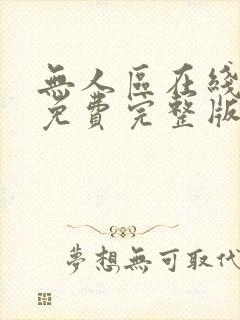 無人區在綫
免費完整版
夢想無可取代